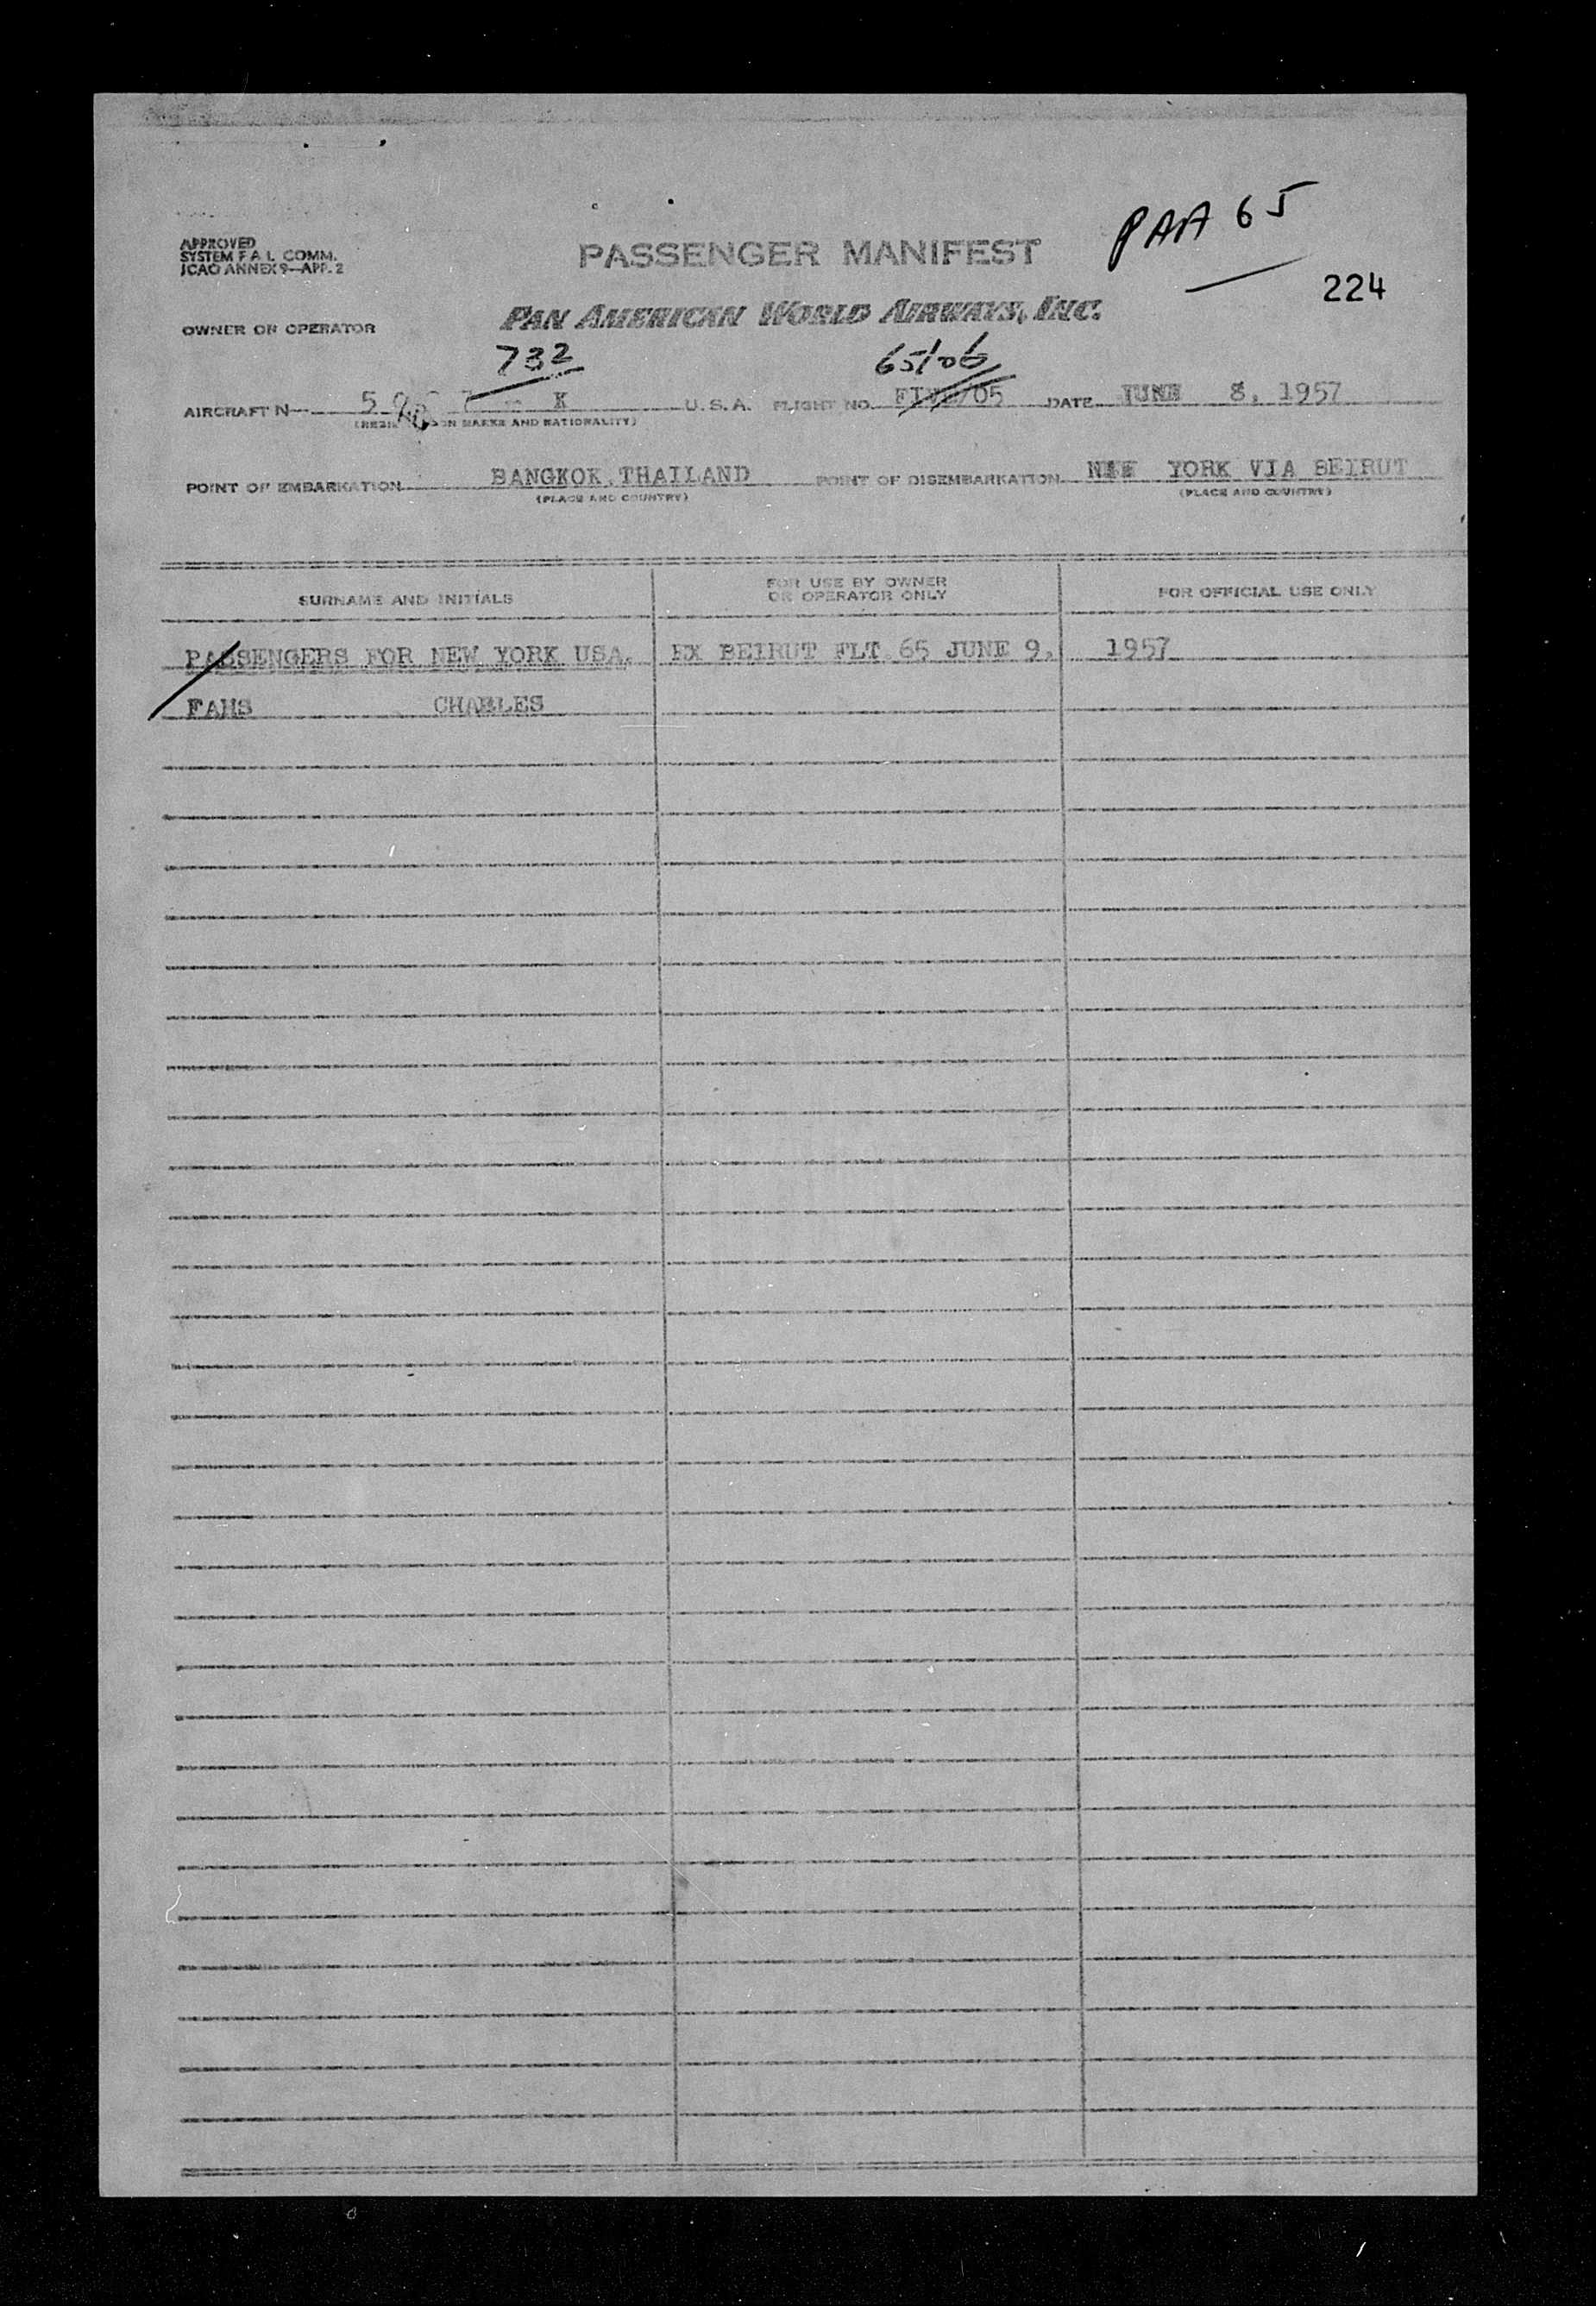 PAA 65
224
APPROVED
SYSTEM F A L COMM.
ICAO ANNEX 9—APP. 2
PASSENGER MANIFEST
OWNER OR OPERATOR PAN AMERICAN WORLD AIRWAYS, INC.
732 65/06
AIRCRAFT N 5 K U. S. A. FLIGHT NO. /05 DATE JUNE 8, 1957
MARKS AND NATIONALITY)
POINT OF EMBARKATION BANGKOK, THAILAND POINT OF DISEMBARKATION NEW YORK VIA BEIRUT
(PLACE AND COUNTRY) (PLACE AND COUNTRY)
SURNAME AND INITIALS FOR USE BY OWNER FOR OFFICIAL USE ONLY
OR OPERATOR ONLY
PASSENGERS FOR NEW YORK USA, EX BEIRUT FLT 65 JUNE 9, 1957
FAHS CHARLES